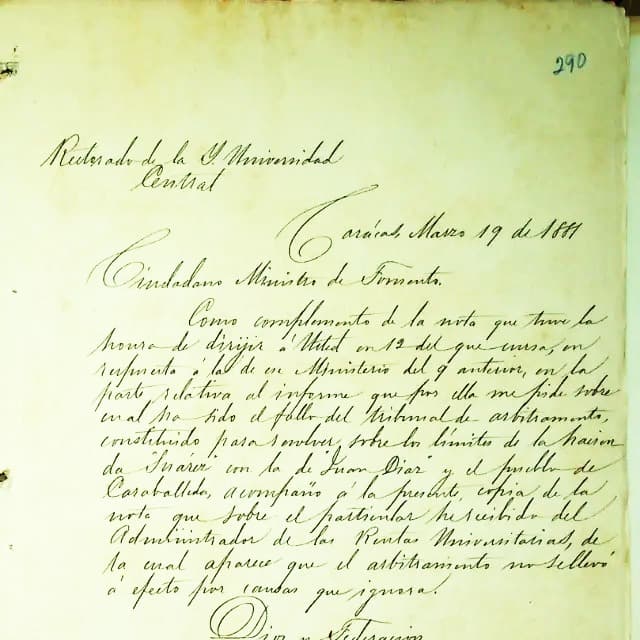 290
Rectorado de la Y. Universidad
Central
Carácas, Marzo 19 de 1881
Ciudadano Ministro de Fomento.
Como complemento de la nota que tuve la
honra de dirijir á Usted en 12 del que cursa, en
respuesta á la de ese Ministerio del 9 anterior, en la
parte relativa al informe que por ella me pide sobre
cual ha sido el fallo del tribunal de arbitramento,
constituido para resolver sobre los límites de la hacien
da "Suárez" con la de "Juan Diaz" y el pueblo de
Caraballeda, acompaño á la presente, copia de la
nota que sobre el particular he recibido del
Administrador de las Rentas Universitarias, de
la cual aparece que el arbitramento no se llevó
á efecto por causas que ignora.
Dios y Federación